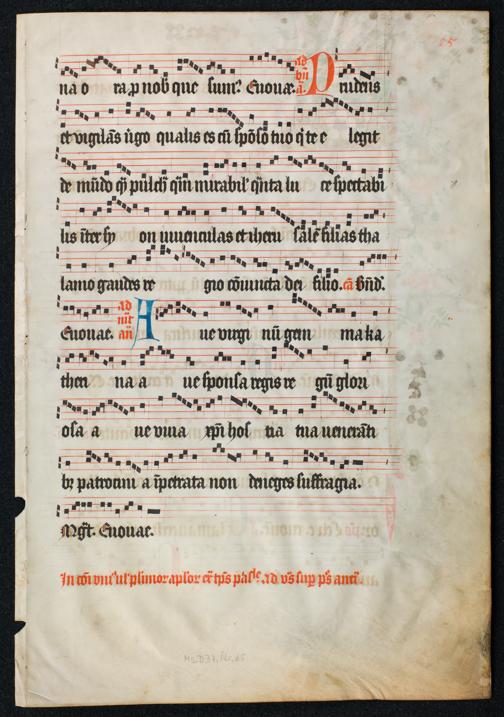 65
na o ra p nob que sunt Euouae. ad bñ a. Prudens
et vigilans v̓go qualis es cū spōso tuo q̓ te e legit
de mūdo q̄ʒ pulch q̄ʒ mirabil' q̓nta lu ce spectabi
lis īter sy on iuuenculas et iheru salē filias tha
lamo gaudes re gio cōiuncta dei filio. cā Bñd.
Euouae. ad mt̄ añ Aue virgi nū gem ma ka
theri na a ue sponsa regis re gū glori
osa a ue viua xp̄i hos tia tua venerāti
bʒ patrocini a īpetrata non deneges suffragia.
Mgt̄. Euouae.
ad vs̄ sup ps̄
Ms.D37, Nr.65